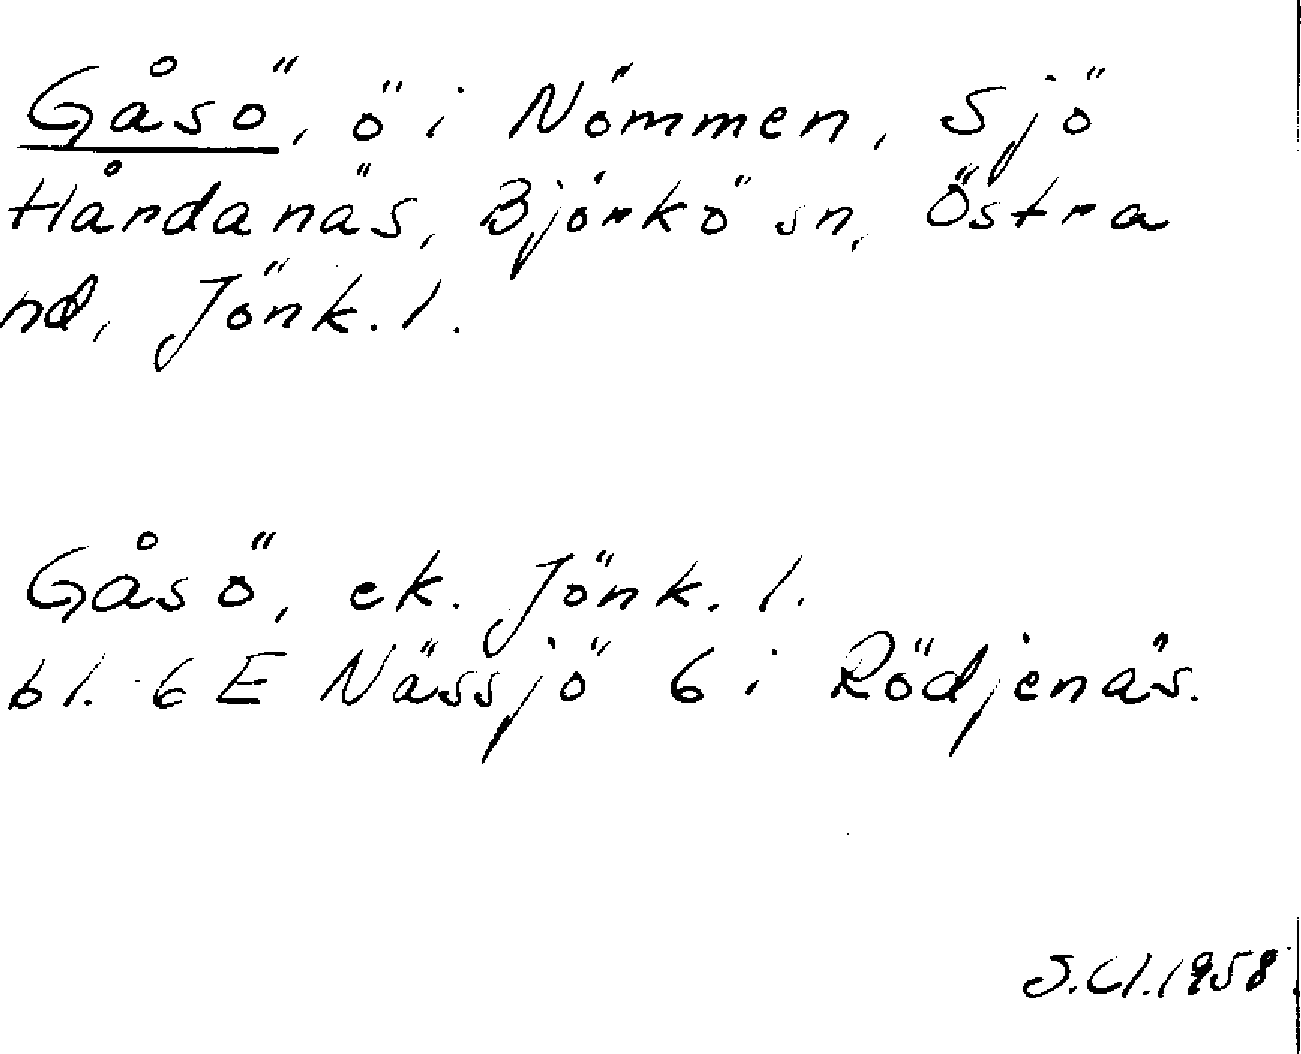 Gåsö, ö i Nömmen, Sjö
Hårdanäs, Björkö sn, Östra
hd, Jönk. l.
Gåsö, ek. Jönk. l.
bl. 6 E Nässjö 6 i Rödjenäs.
S.Cl.1958.